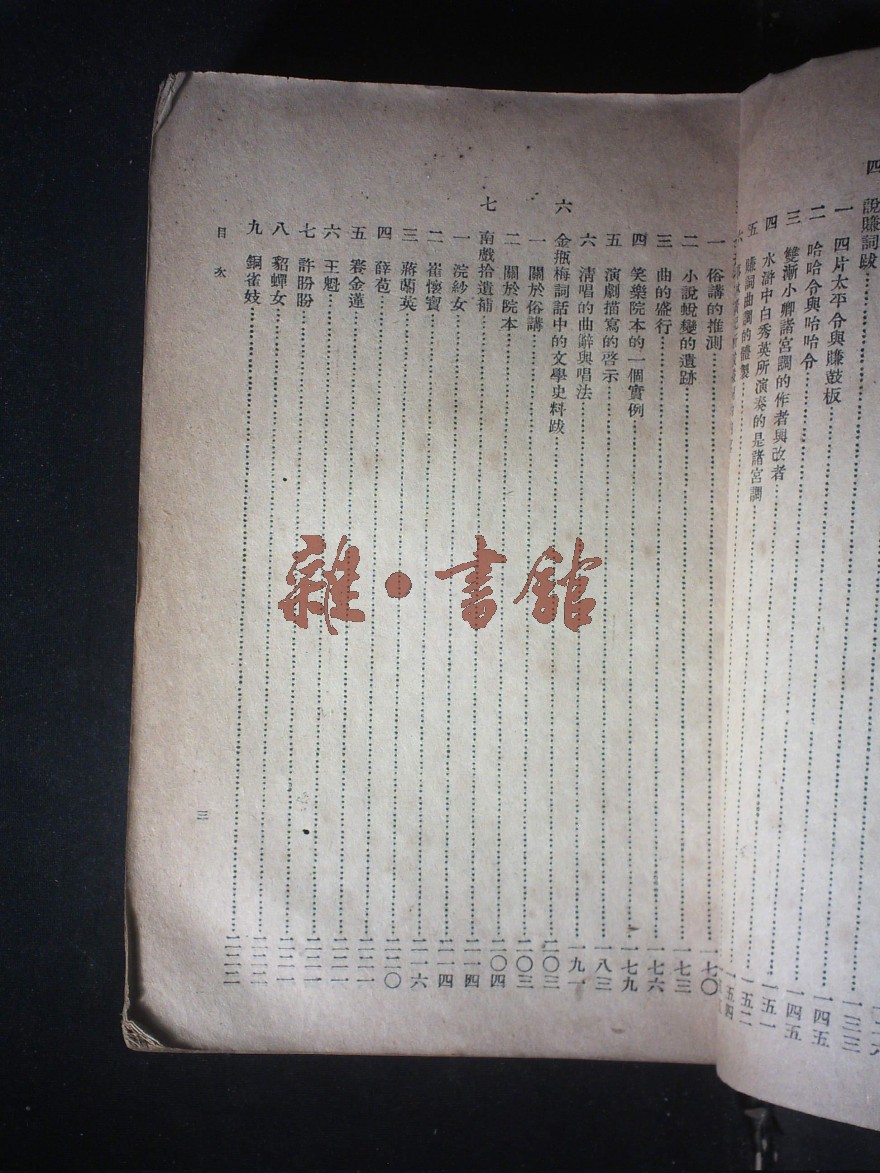 四 說賺詞跋
一 四片太平令與賺鼓板……一三三
二 哈哈令與哈哈令……一四五
三 雙漸小卿諸宮調的作者與改者……一四五
四 水滸中白秀英所演奏的是諸宮調……一五一
五 賺詞曲調的體製……一五二
六……一五四
一 俗講的推測……一七〇
二 小說蛻變的遺跡……一七三
三 曲的盛行……一七六
四 笑樂院本的一個實例……一七九
五 演劇描寫的啓示……一八三
六 清唱的曲辭與唱法……一九一
六 金瓶梅詞話中的文學史料跋……二〇三
一 關於俗講……二〇三
二 關於院本……二〇四
七 南戲拾遺補……二一四
一 浣紗女……二一四
二 崔懷寶……二一六
三 蔣蘭英……二二〇
四 薛苞……二二一
五 賽金蓮……二二一
六 王魁……二二一
七 許盼盼……二二一
八 貂蟬女……二二二
九 銅雀妓……二二二
目次
三
雜·書館